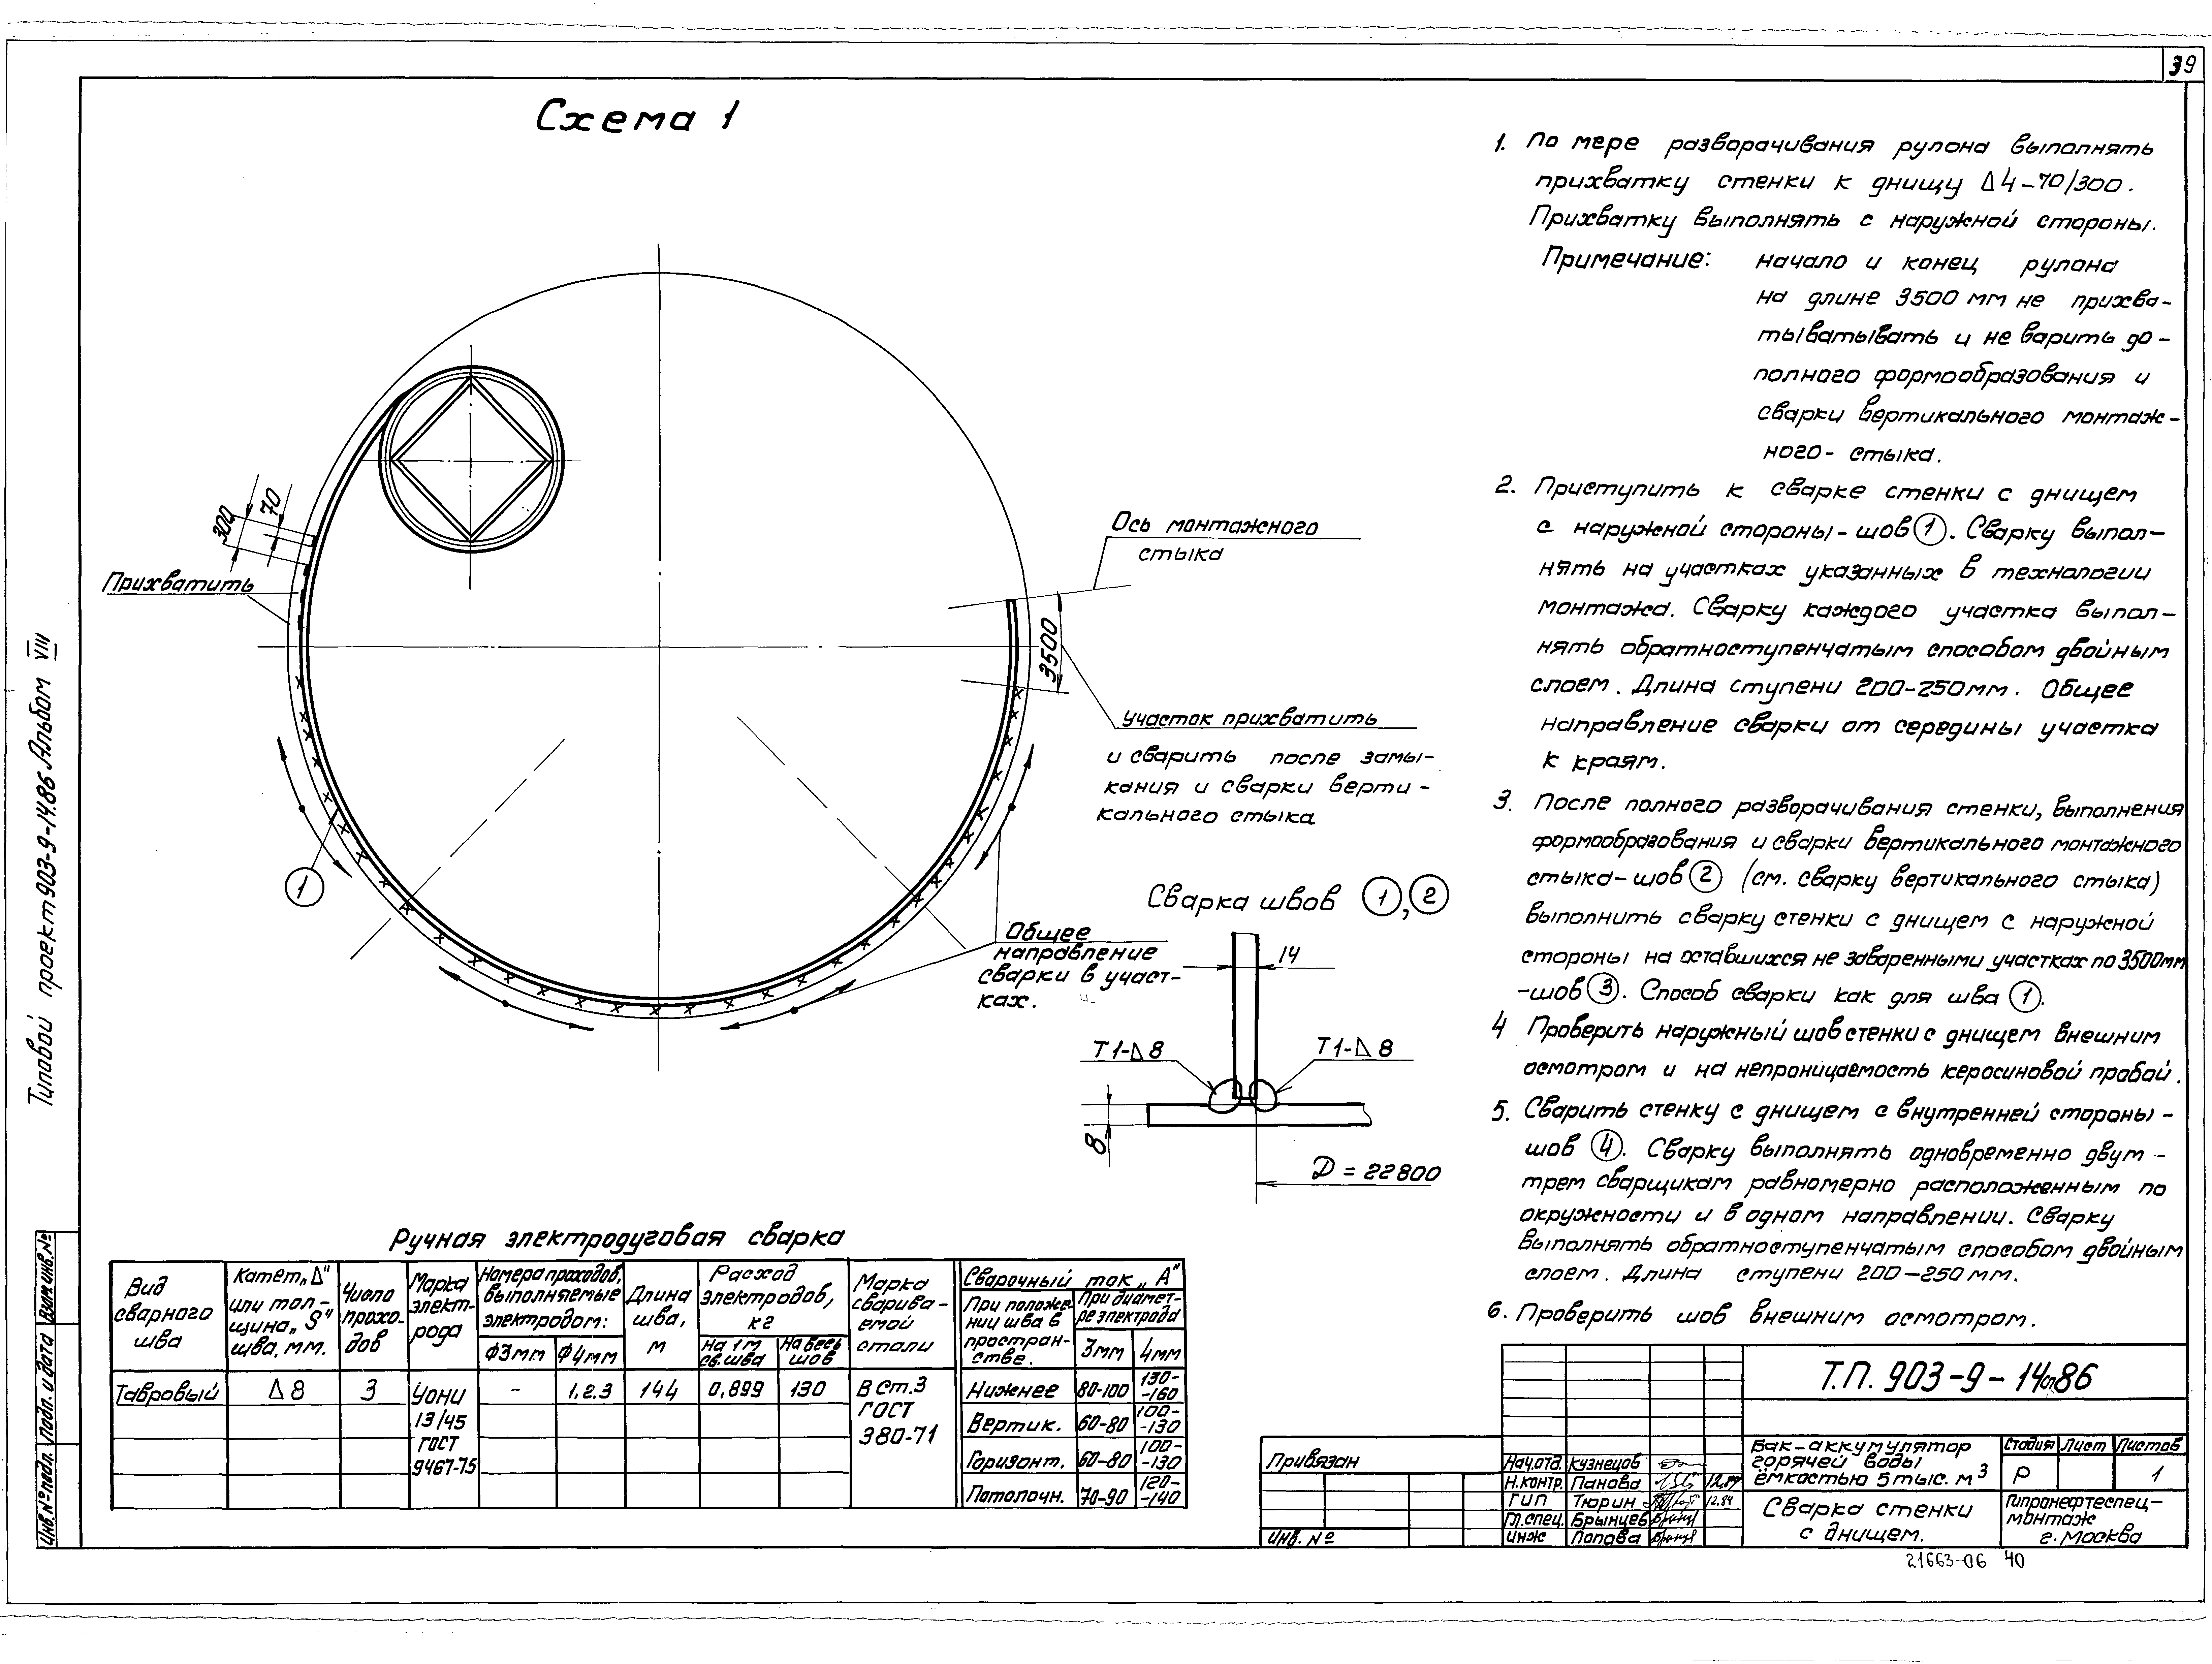 39
Схема 1
1. По мере разворачивания рулона выполнять
прихватку стенки к днищу Δ4-70/300.
Прихватку выполнять с наружной стороны.
Примечание: начало и конец рулона
на длине 3500 мм не прихва-
тыватывать и не варить до-
полного формообразования и
сварки вертикального монтаж-
ного- стыка.
2. Приступить к сварке стенки с днищем
с наружной стороны-шов 1. Сварку выпол-
нять на участках указанных в технологии
монтажа. Сварку каждого участка выпол-
нять обратноступенчатым способом двойным
слоем. Длина ступени 200-250мм. Общее
направление сварки от середины участка
к краям.
3. После полного разворачивания стенки, выполнения
формообразования и сварки вертикального монтажного
стыка-шов 2 (см. сварку вертикального стыка)
выполнить сварку стенки с днищем с наружной
стороны на оставшихся не заваренными участках по 3500мм
-шов 3. Способ сварки как для шва 1.
4 Проверить наружный шов стенки с днищем внешним
осмотром и на непроницаемость керосиновой пробой.
5. Сварить стенку с днищем с внутренней стороны-
шов 4. Сварку выполнять одновременно двум-
трем сварщикам равномерно расположенным по
окружности и в одном направлении. Сварку
выполнять обратноступенчатым способом двойным
слоем. Длина ступени 200-250мм.
6. Проверить шов внешним осмотром.
300
70
Прихватить
Ось монтажного
стыка
3500
Участок прихватить
и сварить после замы-
кания и сварки верти-
кального стыка
1
Общее
направление
сварки в участ-
ках.
Сварка швов 1, 2
14
Т1-Δ8
Т1-Δ8
8
Д = 22800
Типовой проект 903-9-14.86 Альбом VIII
Ручная электродуговая сварка
Вид сварного шва
Катет „Δ" или тол-щина „S" шва, мм.
Число прохо-дов
Марка элект-рода
Номера проходов, выполняемые электродом:
Ф3мм
Ф4мм
Длина шва, м
Расход электродов, кг
На 1м св.шва
На весь шов
Марка сварива-емой стали
Сварочный ток „А"
При положе-нии шва в простран-стве.
При диамет-ре электрода
3мм
4мм
Тавровый Δ8 3 УОНИ 13/45 ГОСТ 9467-75 - 1,2,3 144 0,899 130 В Ст.3 ГОСТ 380-71
Нижнее 80-100 130--160
Вертик. 60-80 100--130
Горизонт. 60-80 100--130
Потолочн. 70-90 120--140
Взам.инв.№
Подп. и дата
Инв.№ подл.
Привязан
Инв. №
Нач.отд. Кузнецов
Н.контр. Панова 12.84
ГИП Тюрин 12.84
Гл.спец. Брынцев
Инж Попова
Т.П. 903-9-14 86
Бак-аккумулятор
горячей воды
емкостью 5тыс. м³
Стадия Лист Листов
Р 1
Сварка стенки
с днищем.
Гипронефтеспец-
монтаж
г. Москва
21663-06 40